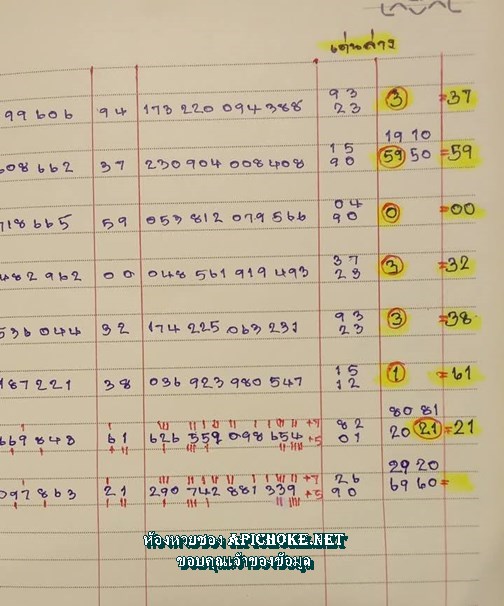 เด่นล่าง
93
99 606 94 173 220 094 388 23 3 =37
19 10
15
608 662 37 230 904 008 408 90 59 50 =59
04
718 665 59 053 812 079 566 90 0 =00
37
482 962 00 048 561 919 493 23 3 =32
93
536 044 32 174 225 063 231 23 3 =38
15
187 221 38 036 923 980 547 12 1 =61
80 81
82
669 848 61 626 559 098 654 +7 +5 01 20 21 =21
29 20
26
097 863 21 290 742 881 339 +7 +5 90 69 60=
ห้องหวยซอง APICHOKE.NET
ขอบคุณเจ้าของข้อมูล